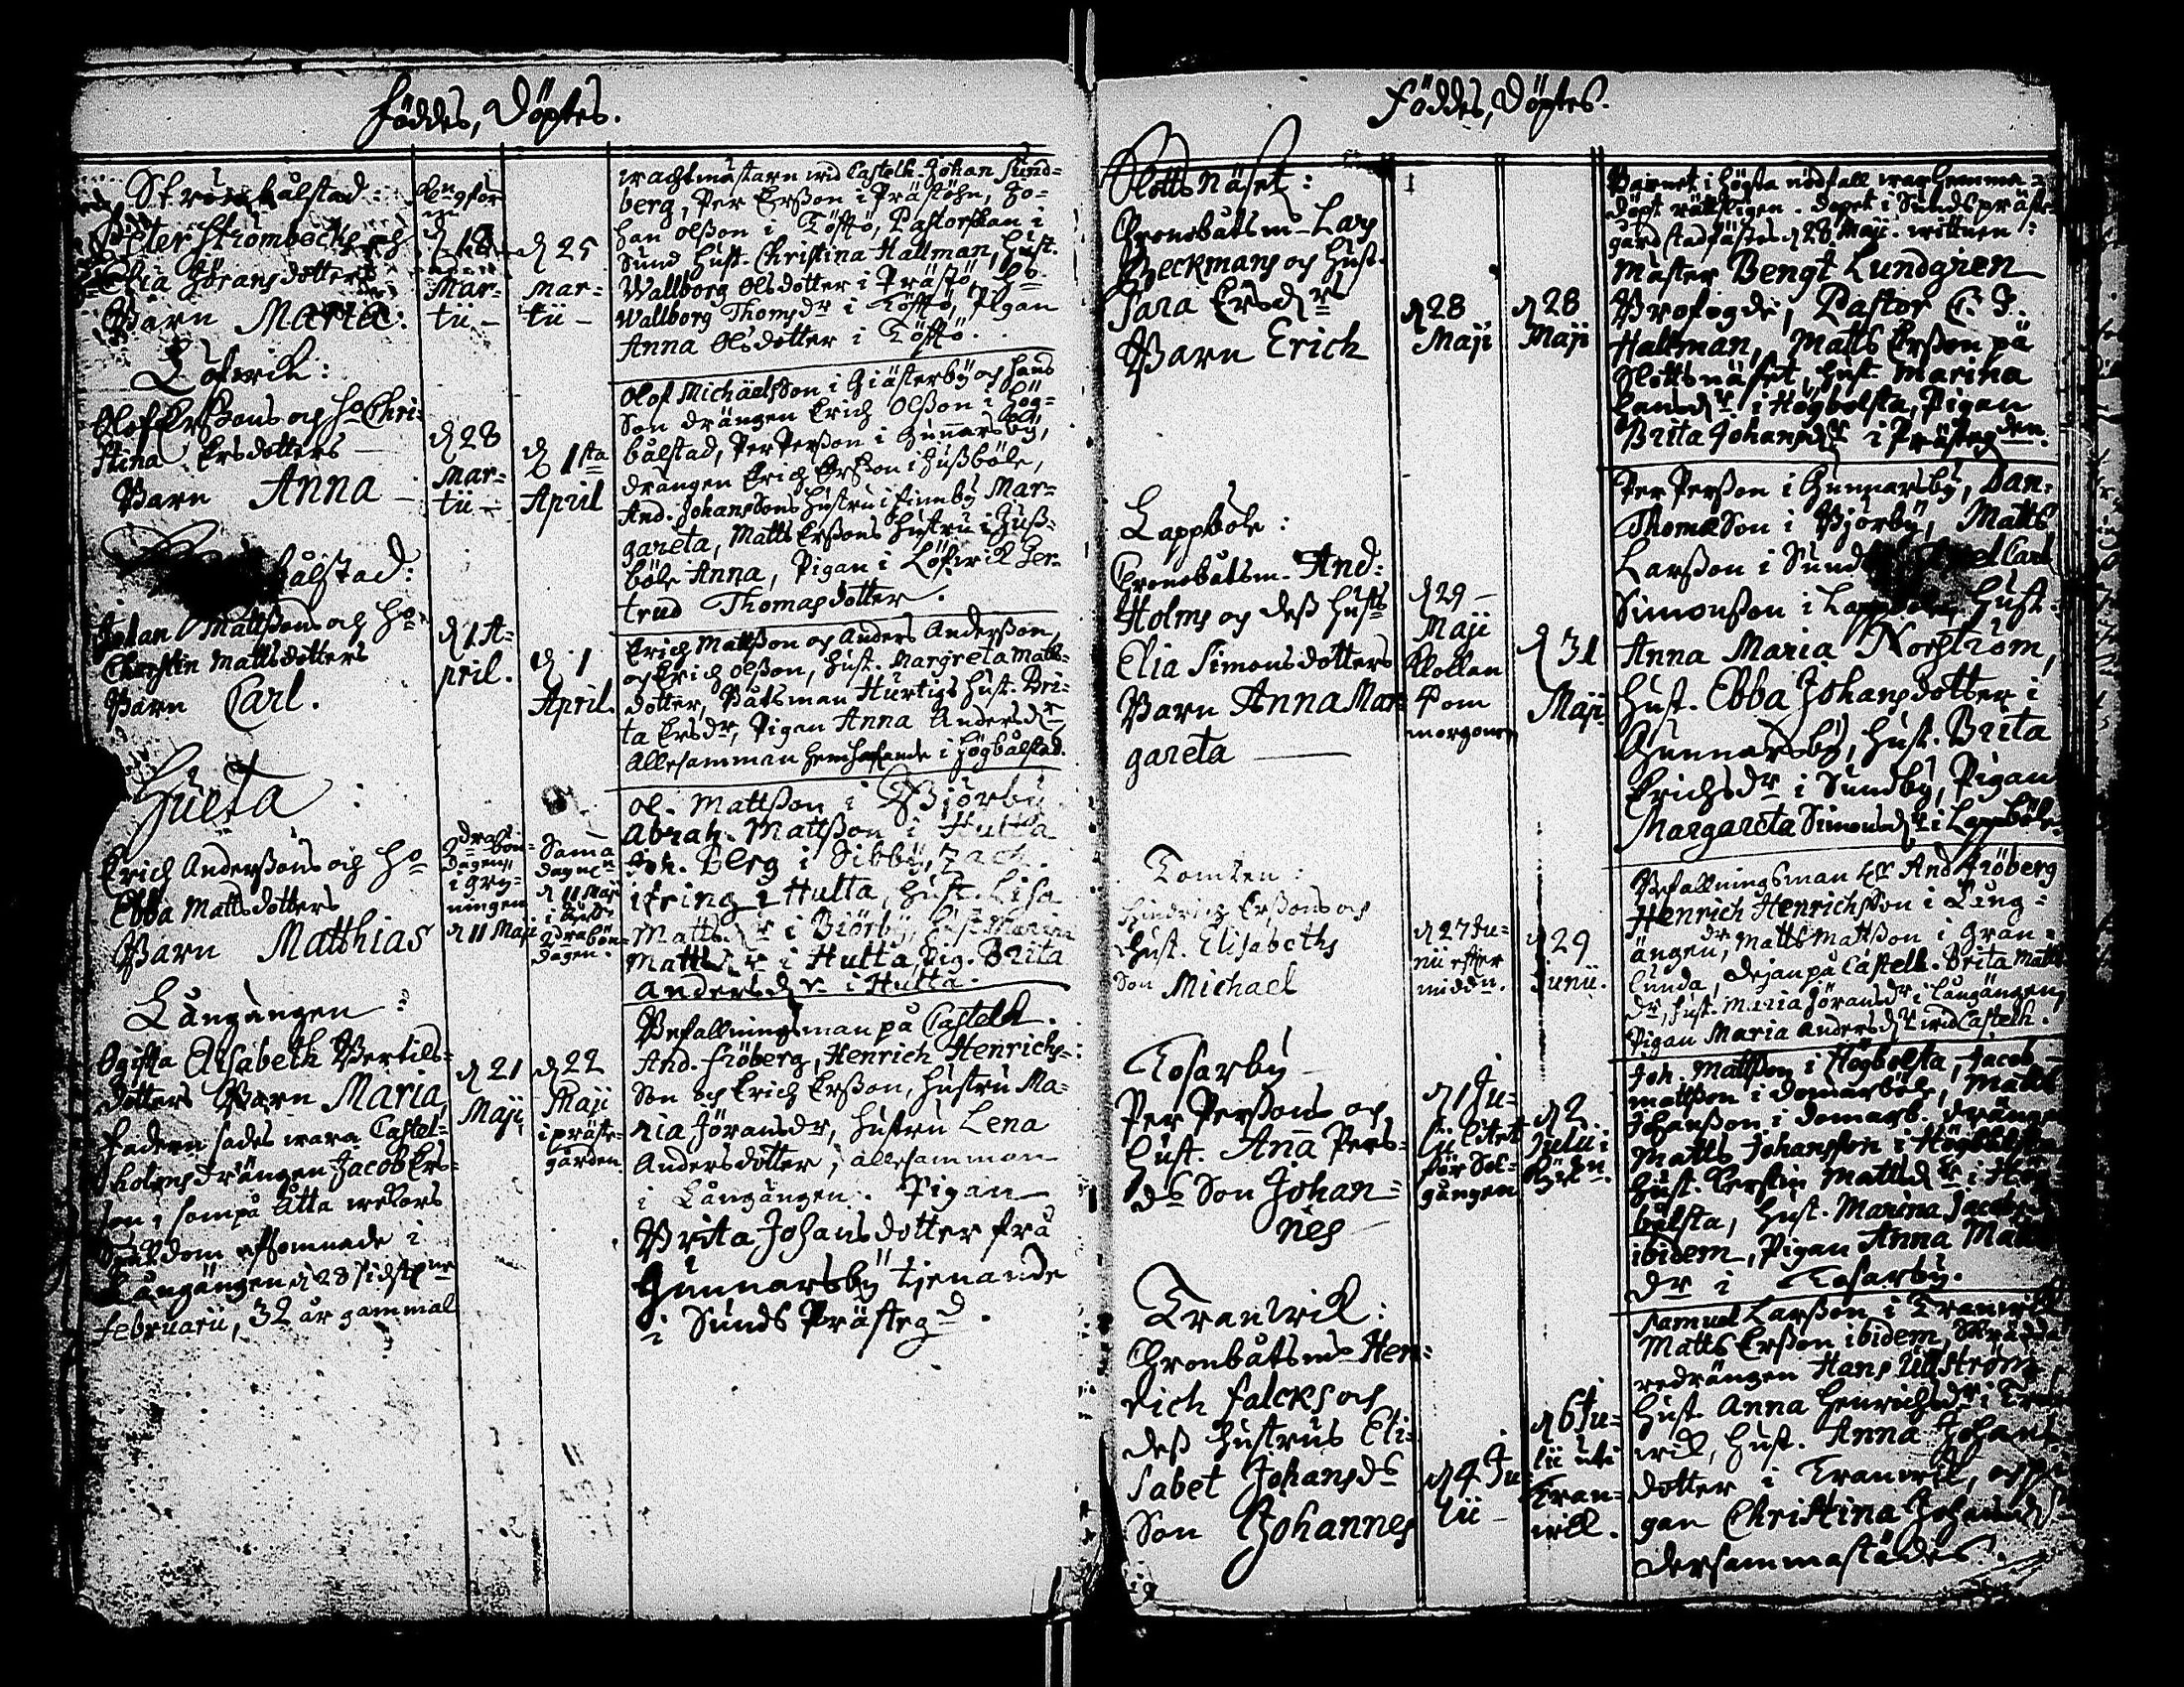 Föddes, Döptes.
bålstad:
Peter Strömbecks och
Elia Jöransdotters
Barn Maria.
d 18
Mar-
tii –
d 25
Mar-
tii –
wachtmästarn wid Castelh. Johan Sund-
berg, Per Erßon i Prästöhn, Jo-
han Olßon i Töftö, Pastorskan i
Sund Hust. Christina Hallman, Hust.
Wallborg Olsdotter i Prästö, Ho
Wallborg Thomsdr i Töftö, Pigan
Anna Olsdotter i Töftö.
Löfwik:
Olof Erßons och Ho Chri-
stina Ersdotters
Barn Anna –
d 28
Mar-
tii –
d 1sta
April
Olof Michaelsson i Giästerby och hans
Son drängen Erich Olßon i Hög-
bålstad, Per Perßon i Gunnarsby,
drängen Erich Erßon i Hußböle,
And. Johanssons Hustru i Finnby Mar-
gareta, Matts Erßons Hustru i Huß-
böle Anna, Pigan i Löfwik Ger-
trud Thomasdotter.
bålstad:
Johan Mattßons och Ho
Cherstin Mattsdotters
Barn Carl.
d 1 A-
pril.
d 1
April.
Erich Mattßon och Anders Anderßon,
och Erich Olßon, Hust. Margreta Matts-
dotter, Båtsman Hurtigs Hust. Bri-
ta Ersdr, Pigan Anna Andersdr
Allesamman hemhafande i Högbålstad.
Hulta:
Erich Anderßons och Ho
Ebba Mattsdotters
Barn Matthias
dagen,
i Gry-
ningen
d 11 Maji
Sama
dagen
d 11 Maji
dagen.
Ol. Mattßon i Björby
Abrah. Mattßon i Hulta
Joh. Berg i Sibby, Zach.
ifring i Hulta, Hust. Lisa
Mattsdr i Biörby, Hust. Marina
Mattsdr i Hulta, Pig. Brita
Andersdr i Hulta.
Långängen:
Ogifta Elisabeth Bertils-
dotters Barn Maria
Fadern sades wara Castel-
holms drängen Jacob Ers-
son, som på åtta wekors
afsomnade i
Långängen d 28 sidstne
Februarii, 32 år gammal
d 21
Maji
d 22
Maji
i präste-
gården.
Befallningsman på Castelh.
And. Fiöberg, Henrich Henrichs-
Son och Erich Erßon, Hustru Ma-
ria Jöransdr, Hustru Lena
Andersdotter, allesamman
i Långängen. Pigan
Brita Johansdotter frå
Gunnarsby tjenande
i Sunds Prästegd.
Föddes, Döptes.
Slottsnäset:
Cronobåtsm. Lars
Beckmans och Hust.
Sara Ersdrs
Barn Erich
d 28
Maji
d 28
Maji
Barnet i högsta nödfall war hemma-
döpt rättsligen. dopet i Sunds präste-
gård stadfästes d 28 Maji. wittnen:
Mäster Bengt Lundgren
Brofogde, Pastor C. J.
Hallman, Matts Erßon på
Slottsnäset, Hust. Marina
i Högbolsta, Pigan
Brita Johansdr i Prästegden.
Lappböle:
Cronobåtsm. And:
Holms och deß Husts
Elia Simonsdotters
Barn Anna Mar-
gareta
d 29 –
Maji
Klockan
4 om
morgonen
d 31
Maji
Per Perßon i Gunnarsby, Dan:
Thomæson i Björby, Matts
Larßon i Sund Carl
Simonßon i Lappböle, Hust.
Anna Maria Norström,
Hust. Ebba Johansdotter i
Gunnarsby, Hust. Brita
Erichsdr i Sundby, Pigan
Margareta Simonsdr i Lappböle.
Tomten:
Hindrich Erßons och
Hust. Elisabeths
Son Michael
d 27 Ju-
nii efter
midd.
d 29
Junii.
Befallningsman And Fiöberg
Henrich Henrichsson i Lång-
ängen, Matts Mattßon i Gran-
lunda, på Castelh. Brita Matts
dr, Hust. Maria Jöransdr i Långängen,
Pigan Maria Andersdr wid Castelh.
Tosarby
Per Perßons och
Hust. Anna Pers-
ds Son Johan-
nes
d 1 Ju-
lii litet
för Sol-
gången
d 2
Julii i
Joh. Mattßon i Högbolsta, Jacob
Mattßon i Domarböle, Matts
Johanßon i Domarb. drängen
Matts Johansson i Högbålsta
Hust. Kerstin Mattsdr i Hög-
bålsta, Hust. Marina Jacobs
ibidem, Pigan Anna Matts
dr i Tosarby.
Tranwik:
Cronbåtsm. Hen-
rich Falcks och
deß Hustrus Eli-
sabet Johansds
Son Johannes
d 4 Ju-
lii –
d 6 Ju-
lii uti
Tran-
wik.
Samuel Larßon i Tranwik
Matts Erßon ibidem, Skrädda
redrängen Hans Ullström
Hust. Anna Henrichsdr i Tran
wik, Hust. Anna Johans
dotter i Tranwik, och Pi
gan Christina Johansd
dersammastädes.